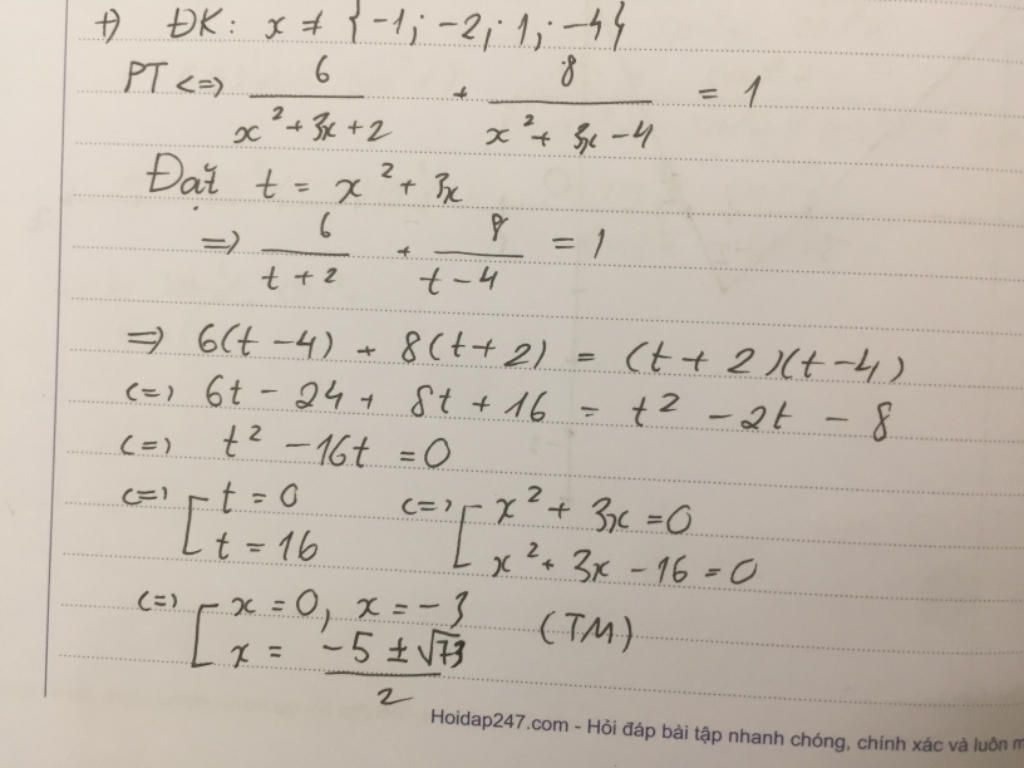 +) ĐK: x ≠ {-1; -2; 1; -4}
PT <=> 6/(x² + 3x + 2) + 8/(x² + 3x - 4) = 1
Đặt t = x² + 3x
=> 6/(t + 2) + 8/(t - 4) = 1
=> 6(t - 4) + 8(t + 2) = (t + 2)(t - 4)
<=> 6t - 24 + 8t + 16 = t² - 2t - 8
<=> t² - 16t = 0
<=> [ t = 0 <=> [ x² + 3x = 0
t = 16 x² + 3x - 16 = 0
<=> [ x = 0, x = -3 (TM)
x = (-5 ± √73)/2
Hoidap247.com - Hỏi đáp bài tập nhanh chóng, chính xác và luôn m